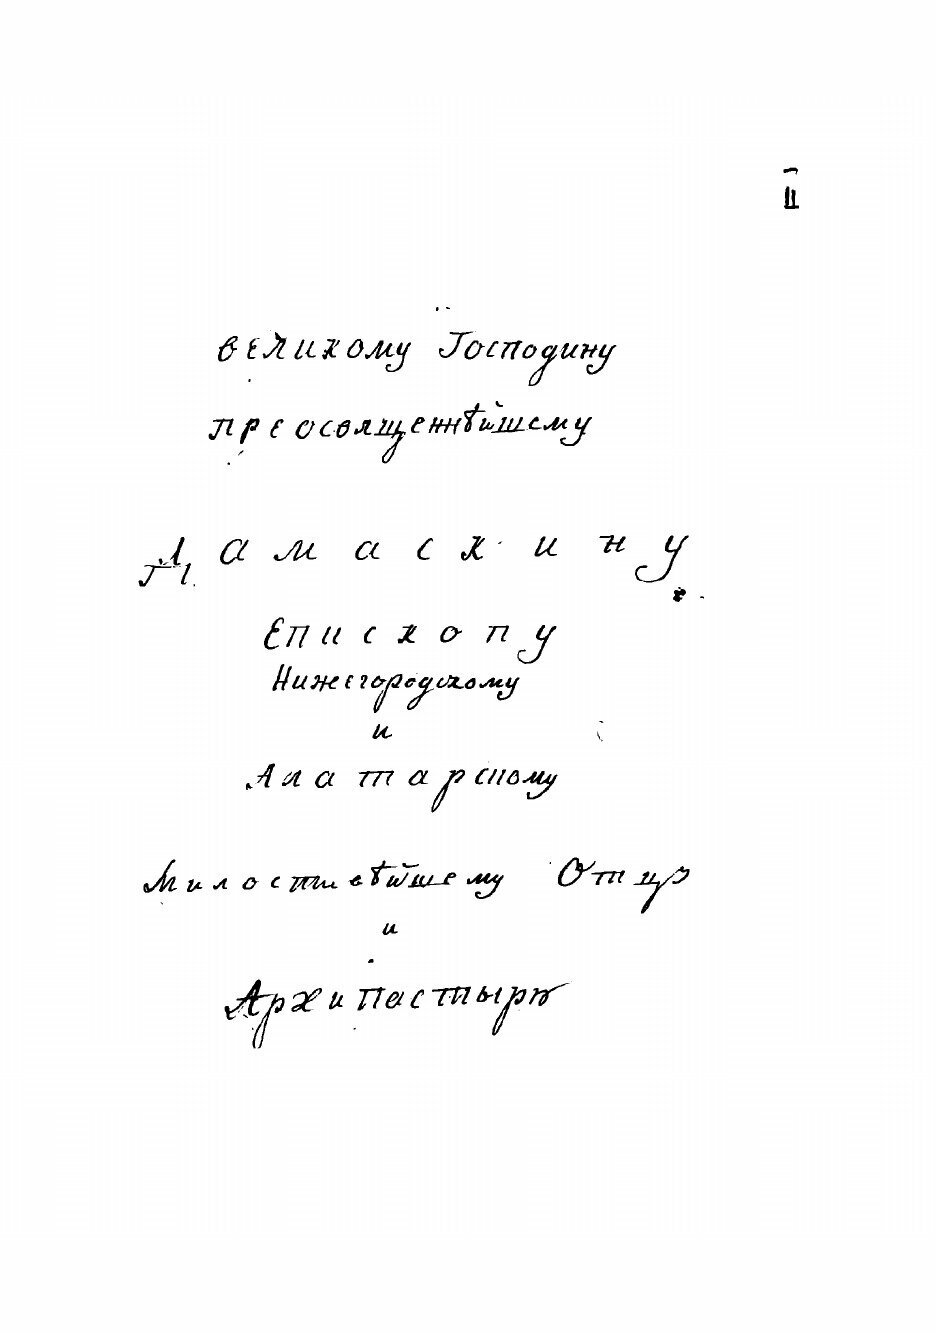 II
великому Господину
преосвященнѣйшему
Дамаскину
Епископу
Нижегородскому
и
Алатарскому
Милостивѣйшему Отцу
и
Архипастырю